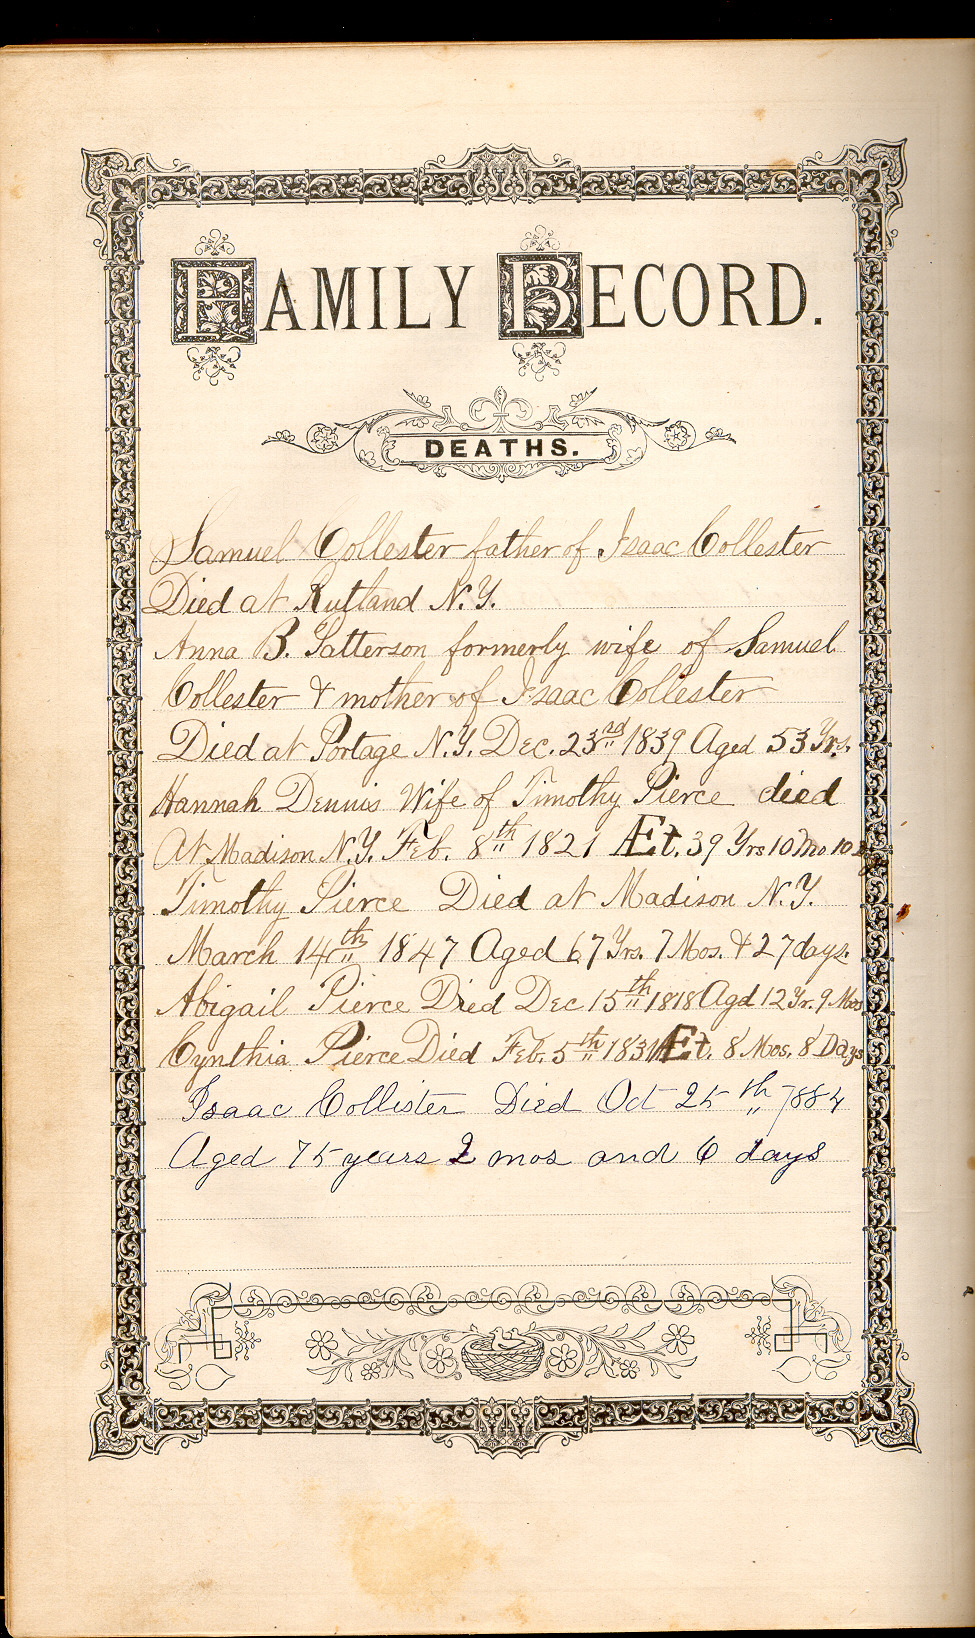 FAMILY RECORD.
DEATHS.
Samuel Collester father of Isaac Collester
Died at Rutland N.Y.
Anna B. Patterson formerly wife of Samuel
Collester & mother of Isaac Collester
Died at Portage N.Y. Dec. 23rd 1839 Aged 53 Yrs.
Hannah Dennis Wife of Timothy Pierce died
At Madison N.Y. Feb. 8th 1821 Æt. 39 Yrs 10 Mo 10
Timothy Pierce Died at Madison N.Y.
March 14th 1847 Aged 67 Yrs. 7 Mos. & 27 days.
Abigail Pierce Died Dec 15th 1818 Agd 12 Yr. 9 Mos
Cynthia Pierce Died Feb. 5th 1831 Æt. 8 Mos. 8 Days
Isaac Collister Died Oct 25th 1884
Aged 75 years 2 mos and 6 days